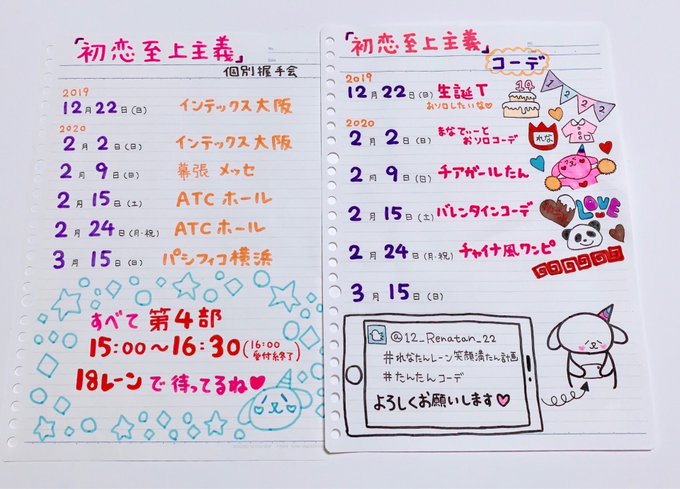 「初恋至上主義」
個別握手会
2019
12月22日(日) インテックス大阪
2020
2月2日(日) インテックス大阪
2月9日(日) 幕張メッセ
2月15日(土) ATCホール
2月24日(月・祝) ATCホール
3月15日(日) パシフィコ横浜
すべて 第4部
15:00〜16:30(16:00受付終了)
18レーンで待ってるね♡
「初恋至上主義」
コーデ
2019
12月22日(日) 生誕T
おソロしたいな♡
19
1222
2020
2月2日(日) まなてぃーとおソロコーデ
れな
2月9日(日) チアガールたん
2月15日(土) バレンタインコーデ
LOVE
2月24日(月・祝) チャイナ風ワンピ
3月15日(日)
@12_Renatan_22
#れなたんレーン笑顔満たん計画
#たんたんコーデ
よろしくお願いします♡